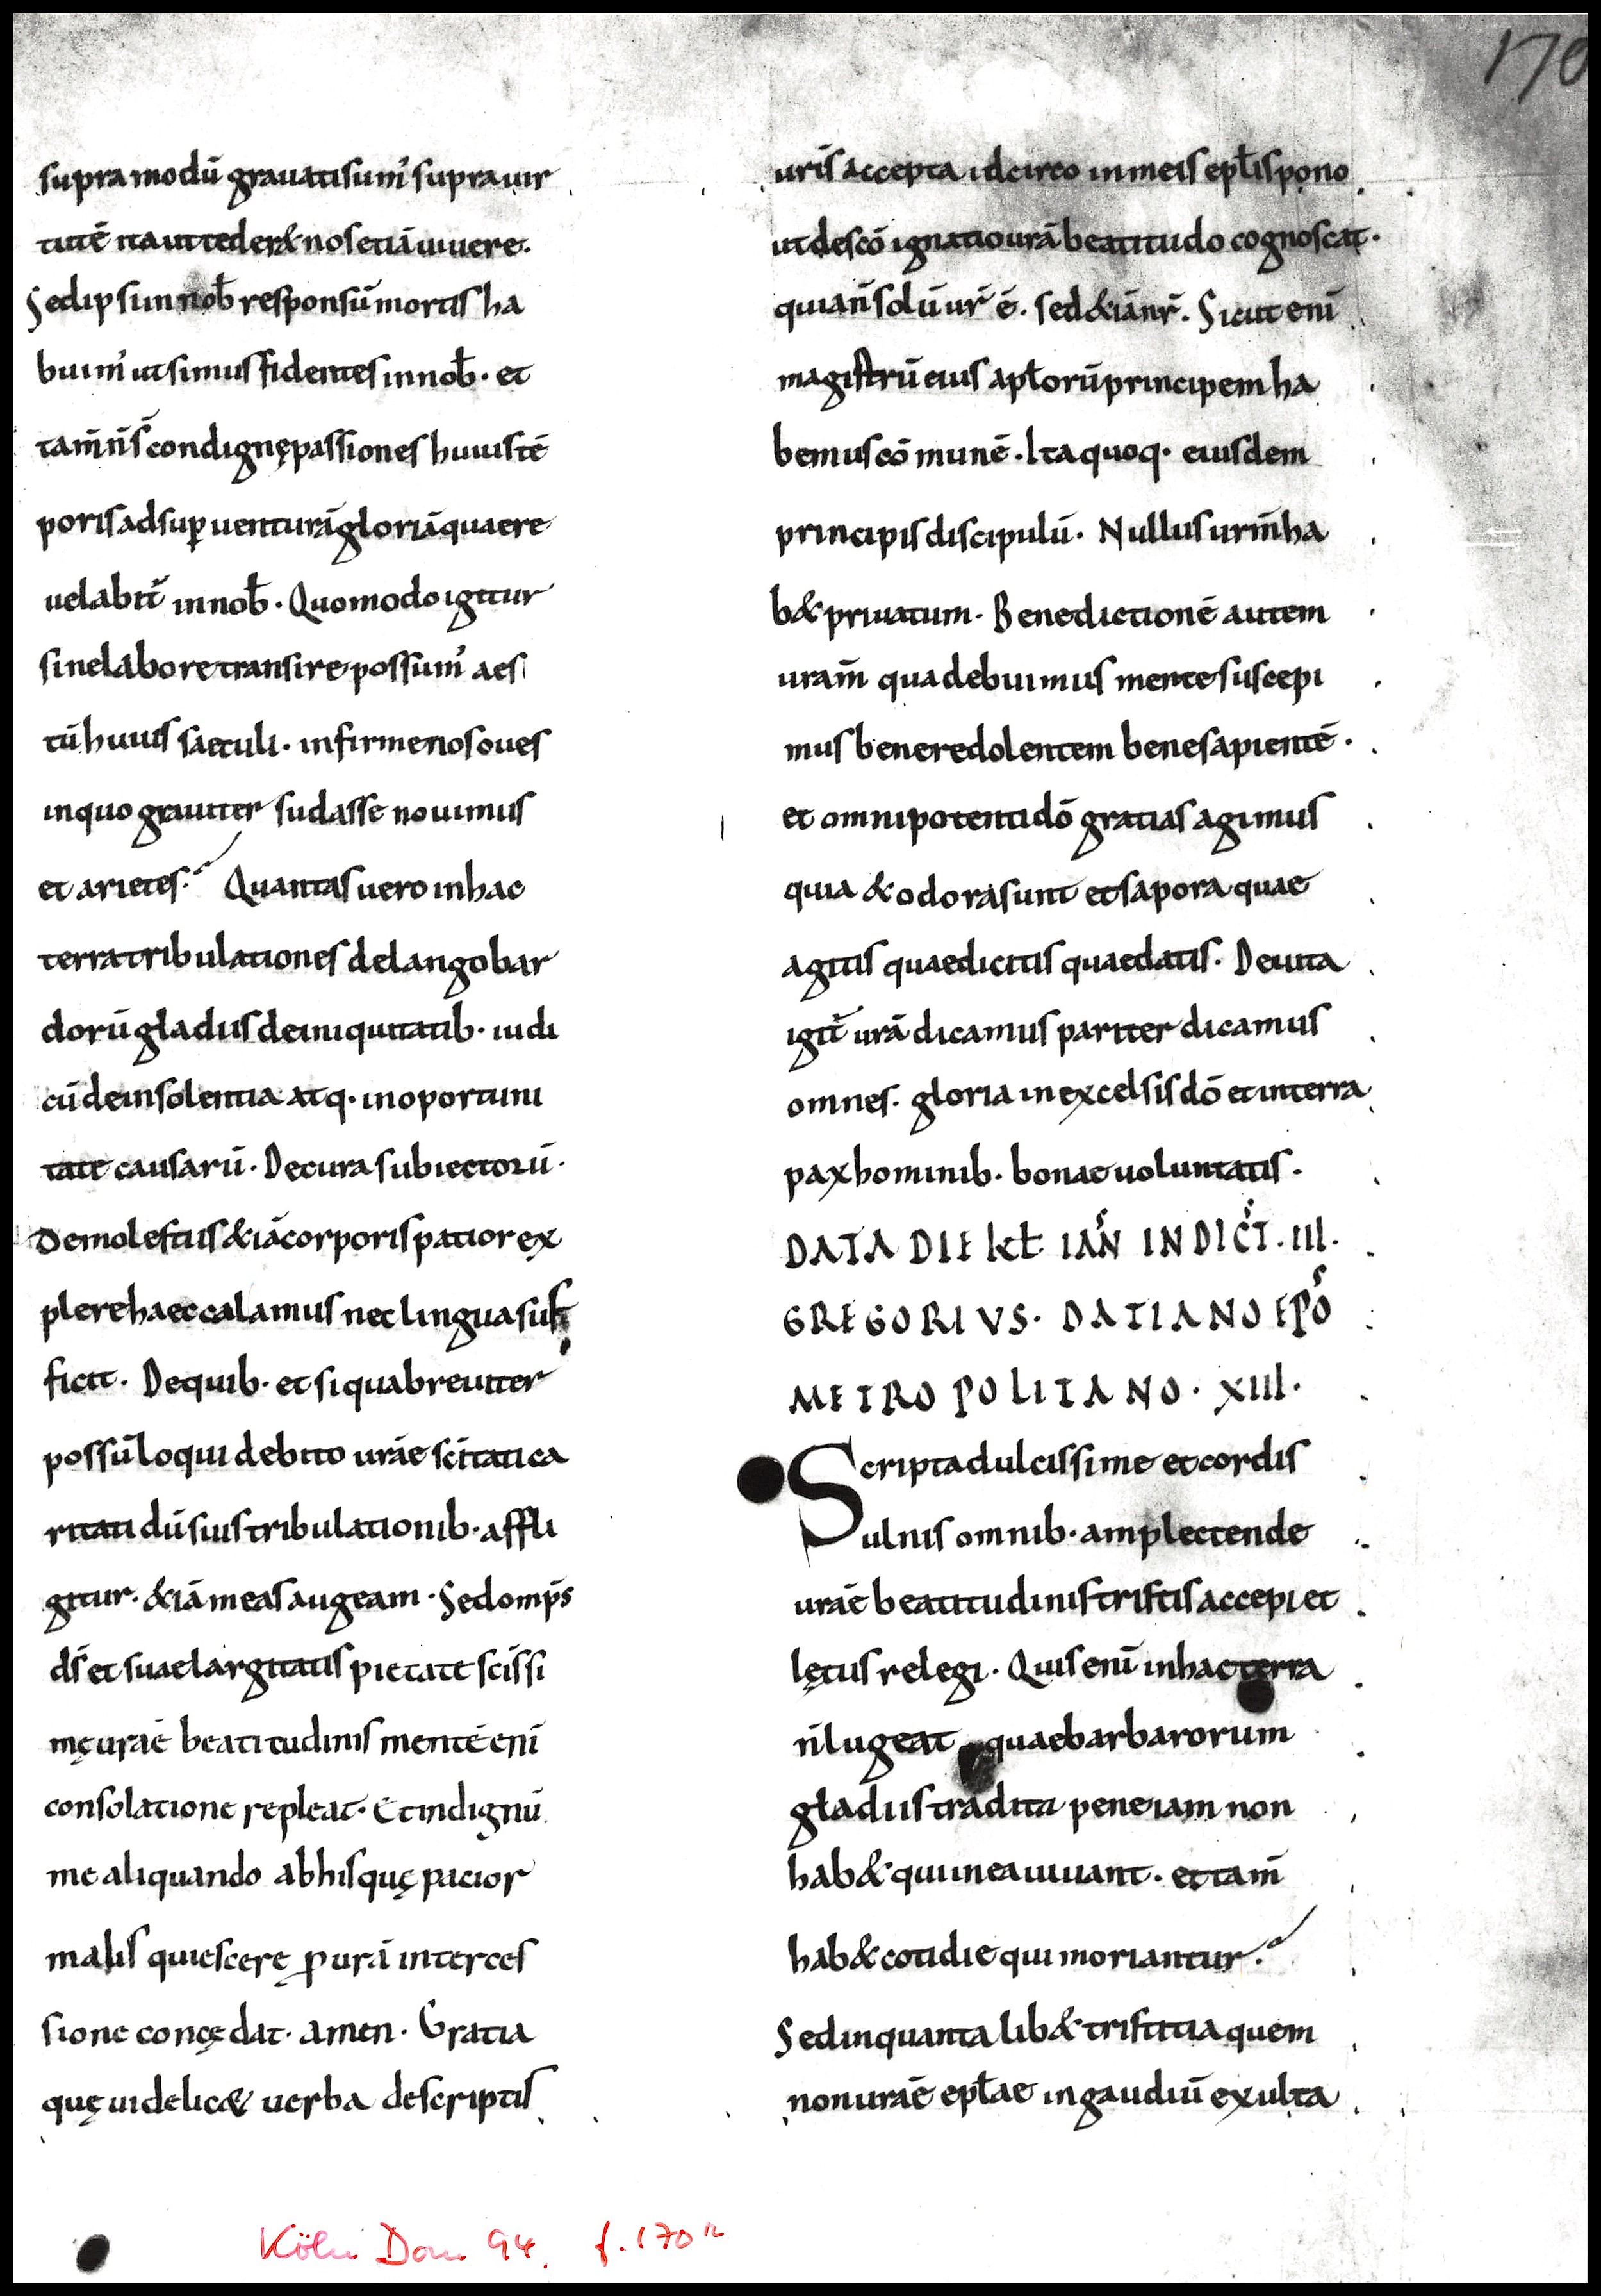 170
supra modū grauati sum᾽ supra uir
tutē ita ut teder& nos etiā uiuere.
Sed ipsi in nob̄ responsū mortis ha
buim᾽ ut simus fidentes in nob̄· et
tam̄ n̄s condignę passiones huius tē
poris ad suꝑuenturā gloriā quae re
uelabit᷑ in nob̄· Quomodo igitur
sine labore transire possum᾽ aes
tū huius saeculi· infirme nos oues
in quo grauiter sudasse nouimus
et arietes. Quantas uero in hac
terra tribulationes de langobar
dorū gladiis de iniquitatib· iudi
cū de insolentia atq· inoportuni
tate causarū· De cura subiectorū·
De molestiis &iā corporis patior ex
plere haec calamus nec lingua suf
ficit· De quib· et si qua breuiter
possū loqui debito urāe sc̄itati ca
ritati dū suis tribulationib· affli
gitur· &iā meas augeam· Sed omp̄s
ds̄ et suae largitatis pietate sc̄issi
mę urāe beatitudinis mentē eni
consolatione repleat· Et indignū
me aliquando ab his quę pacior
malis quiescere ꝓ urā interces
sione concędat· amen· Gratia
quę uidelic& uerba de scriptis
uris̄ accepta idcirco in meis epl̄is pono
ut de sc̄o ignatio urā beatitudo cognoscat·
quia n̄ solū ur̄ ē· sed &iā nr̄· Sicut eni
magistrū eius apl̄orū principem ha
bemus cōmunē· Ita quoq· eiusdem
principis discipulū· Nullus urm̄ ha
b& priuatum· Benedictionē autem
uram̄ qua debuimus mente suscepi
mus bene redolentem bene sapientē·
et omnipotenti dō gratias agimus
quia & odora sunt et sapora quae
agitis quae dicitis quae datis· De uita
igit᷑ urā dicamus pariter dicamus
omnes· gloria in excelsis dō et in terra
pax hominib· bonae uoluntatis·
DATA DIE kł IAN̄ INDICT̄· III·
GREGORIVS· DATIANO EPŌ
METROPOLITANO· XIII·
Scripta dulcissime et cordis
ulnis omnib· amplectende
urāe beatitudinis tristis accepi et
lętus relegi· Quis enī in hac terra
n̄ lugeat quae barbarorum
gladiis tradita pene iam non
hab& qui in ea uiuant· et tam̄
hab& cotidie qui moriantur·
Sed in quantalib& tristitia quem
non urāe epl̄ae in gaudiū exulta
Köln Dom 94. f. 170r